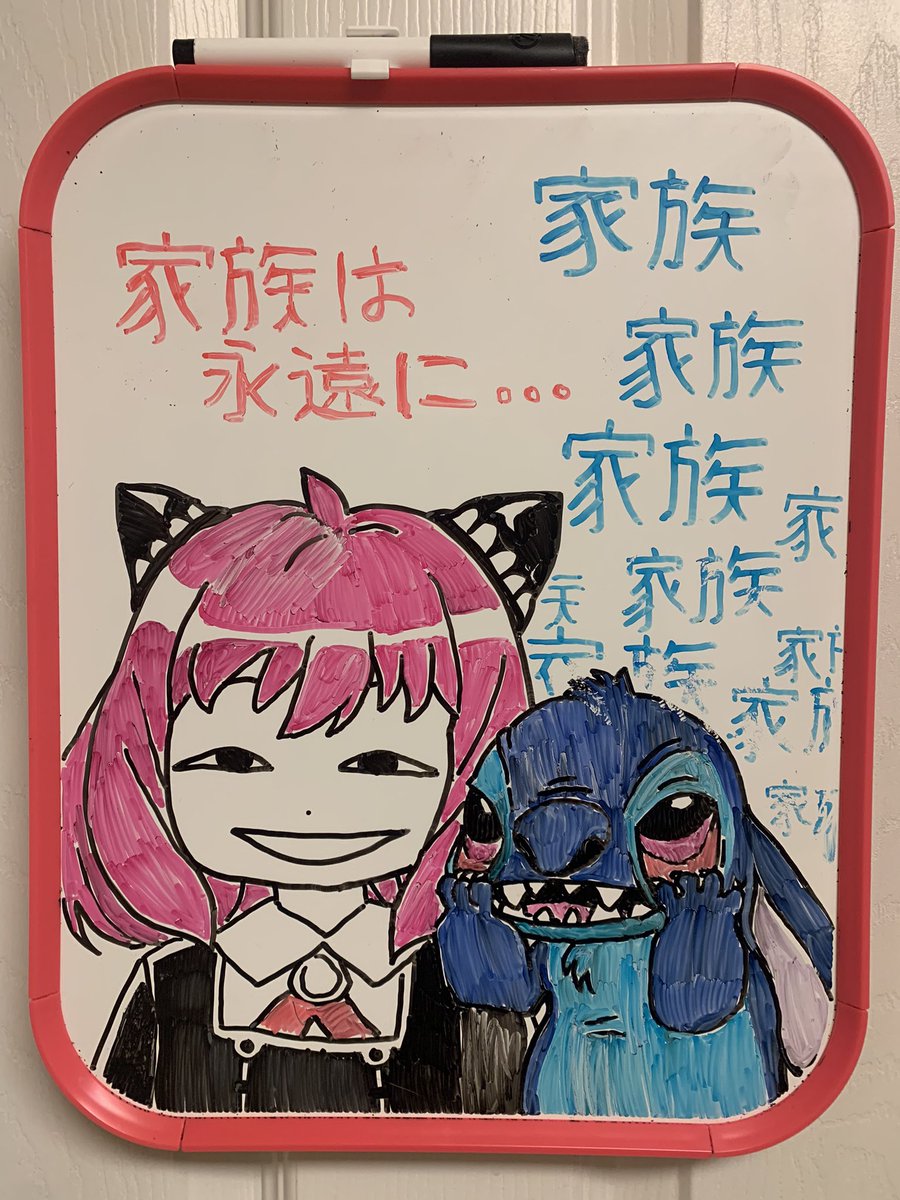 家族は
永遠に...
家族
家族
家族
家
家族
族
家
家族
家